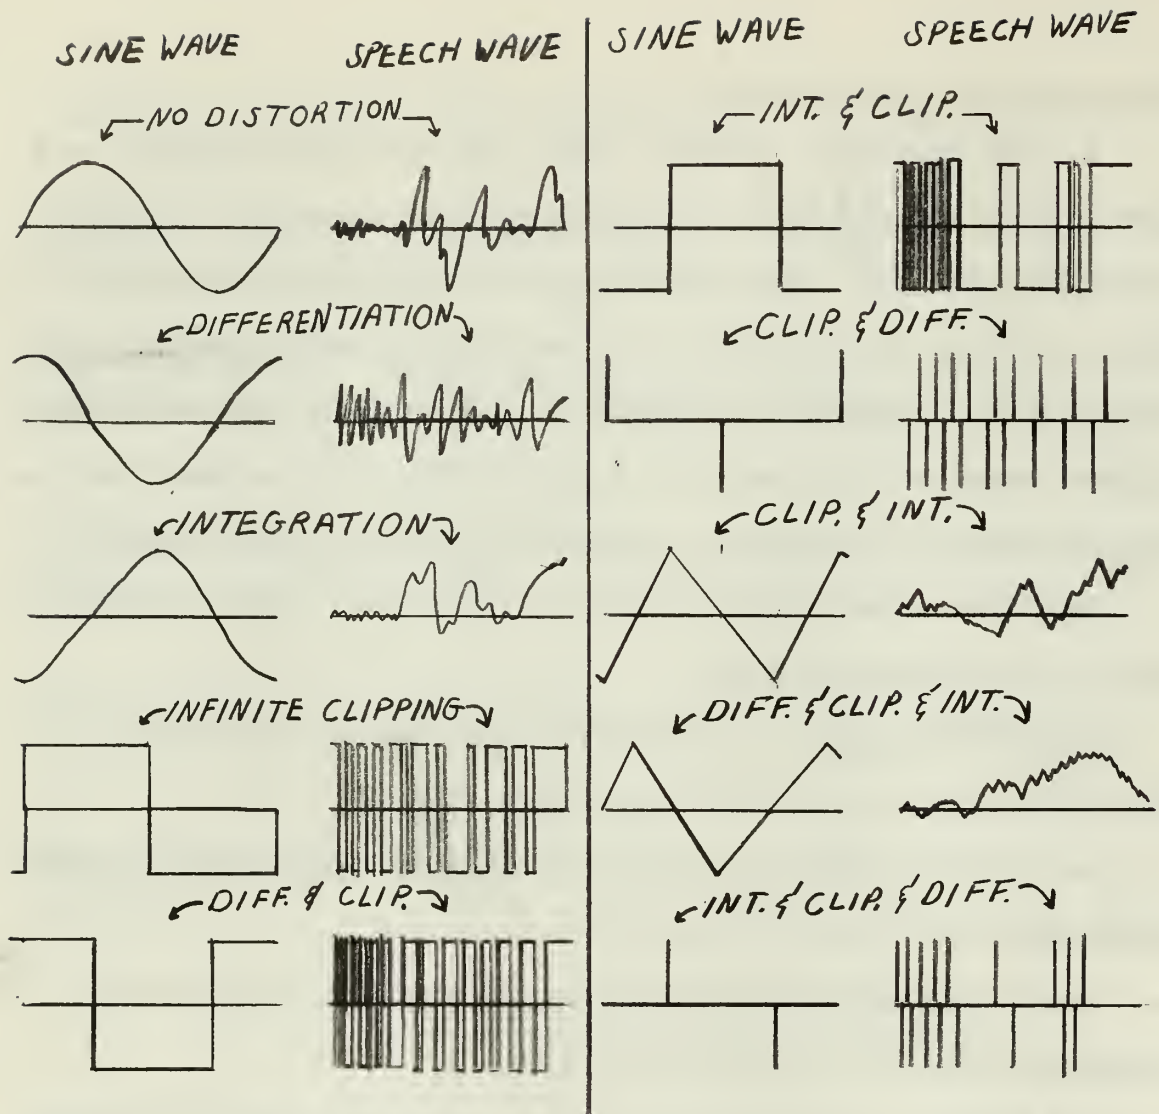 SINE WAVE SPEECH WAVE
NO DISTORTION
DIFFERENTIATION
INTEGRATION
INFINITE CLIPPING
DIFF. & CLIP.
SINE WAVE SPEECH WAVE
INT. & CLIP.
CLIP. & DIFF.
CLIP. & INT.
DIFF. & CLIP. & INT.
INT. & CLIP. & DIFF.